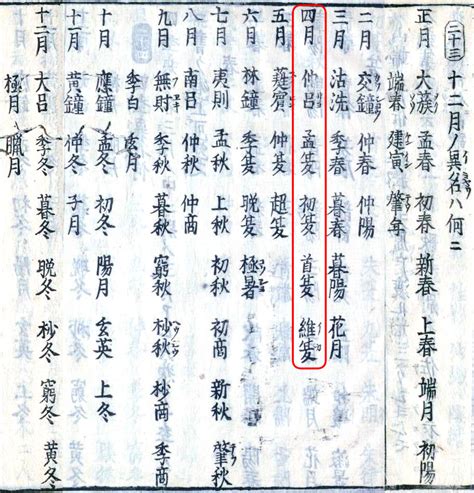 二十三 十二月ノ異名ハ何ニ
正月 大蔟 孟春 初春 新春 上春 端月 初陽
端春 建寅 肇年
二月 夾鐘 仲春 仲陽
三月 沽洗 季春 暮春 暮陽 花月
四月 仲呂 孟夏 初夏 首夏 維夏
五月 蕤賓 仲夏 超夏
六月 林鐘 季夏 晩夏 極暑
七月 夷則 孟秋 上秋 初秋 初商 新秋 肇秋
八月 南呂 仲秋 仲商
九月 無射 季秋 暮秋 窮秋 杪秋 杪商 季商
季白 玄月
十月 應鐘 孟冬 初冬 陽月 玄英 上冬
十一月 黄鐘 仲冬 子月
十二月 大呂 季冬 暮冬 晩冬 杪冬 窮冬 黄冬
極月 臘月